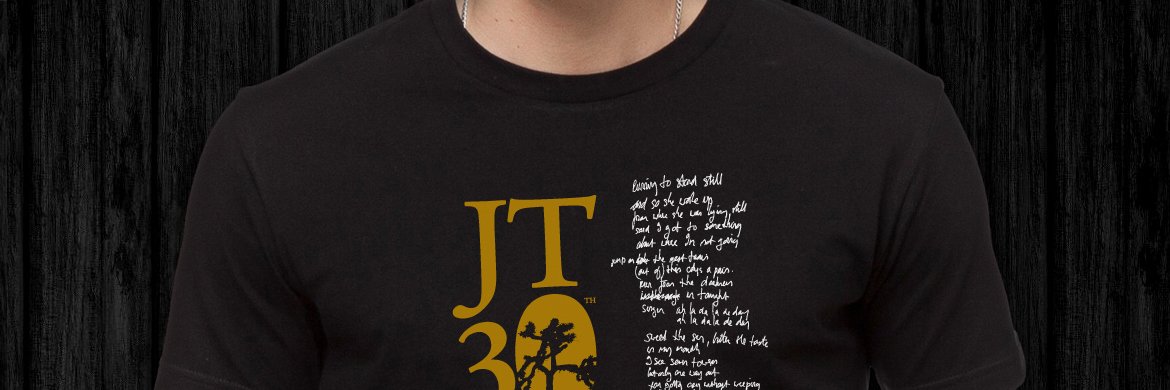 JT
30
TH
Running to stand still
and so she woke up
from where she was lying still
said I got to something
about where I'm not going
on the next train
(out of) this
run from the darkness
in tonight
singin ah la da la de day
ah la da la de day
sweet the sin, bitter the taste
in my mouth
I see seven towers
but only one way out
you gotta cry without weeping